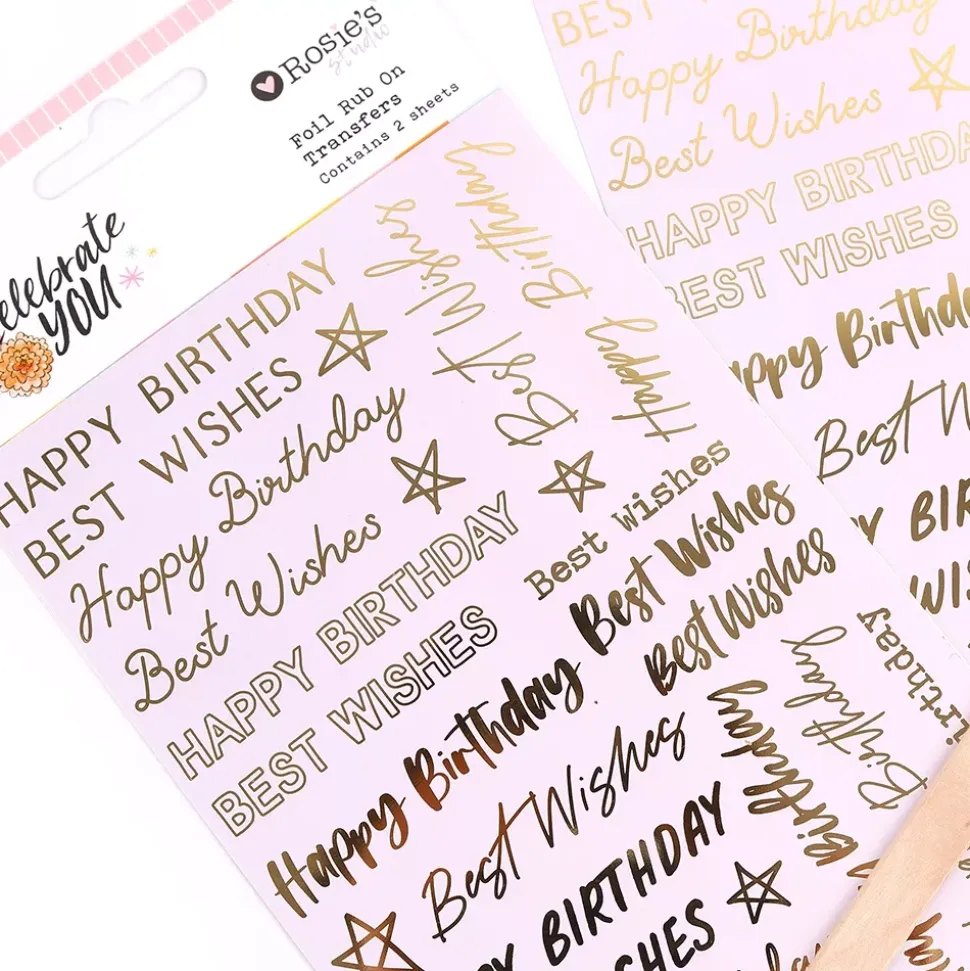 Rosie's
studio
Foil Rub On
Transfers
Contains 2 sheets
Celebrate
YOU
HAPPY BIRTHDAY
BEST WISHES
Happy Birthday
Best Wishes
HAPPY BIRTHDAY
BEST WISHES
Happy Birthday
Best Wishes
BIRTHDAY
Best Wishes
Birthday
Happy
Best Wishes
Best Wishes
Best Wishes
Birthday
Birthday
BEST
Happy Birthday
Best Wishes
HAPPY BIRTHDA
BEST WISHES
ppy Birthda
Best W
Y BIR
WIS
irthday